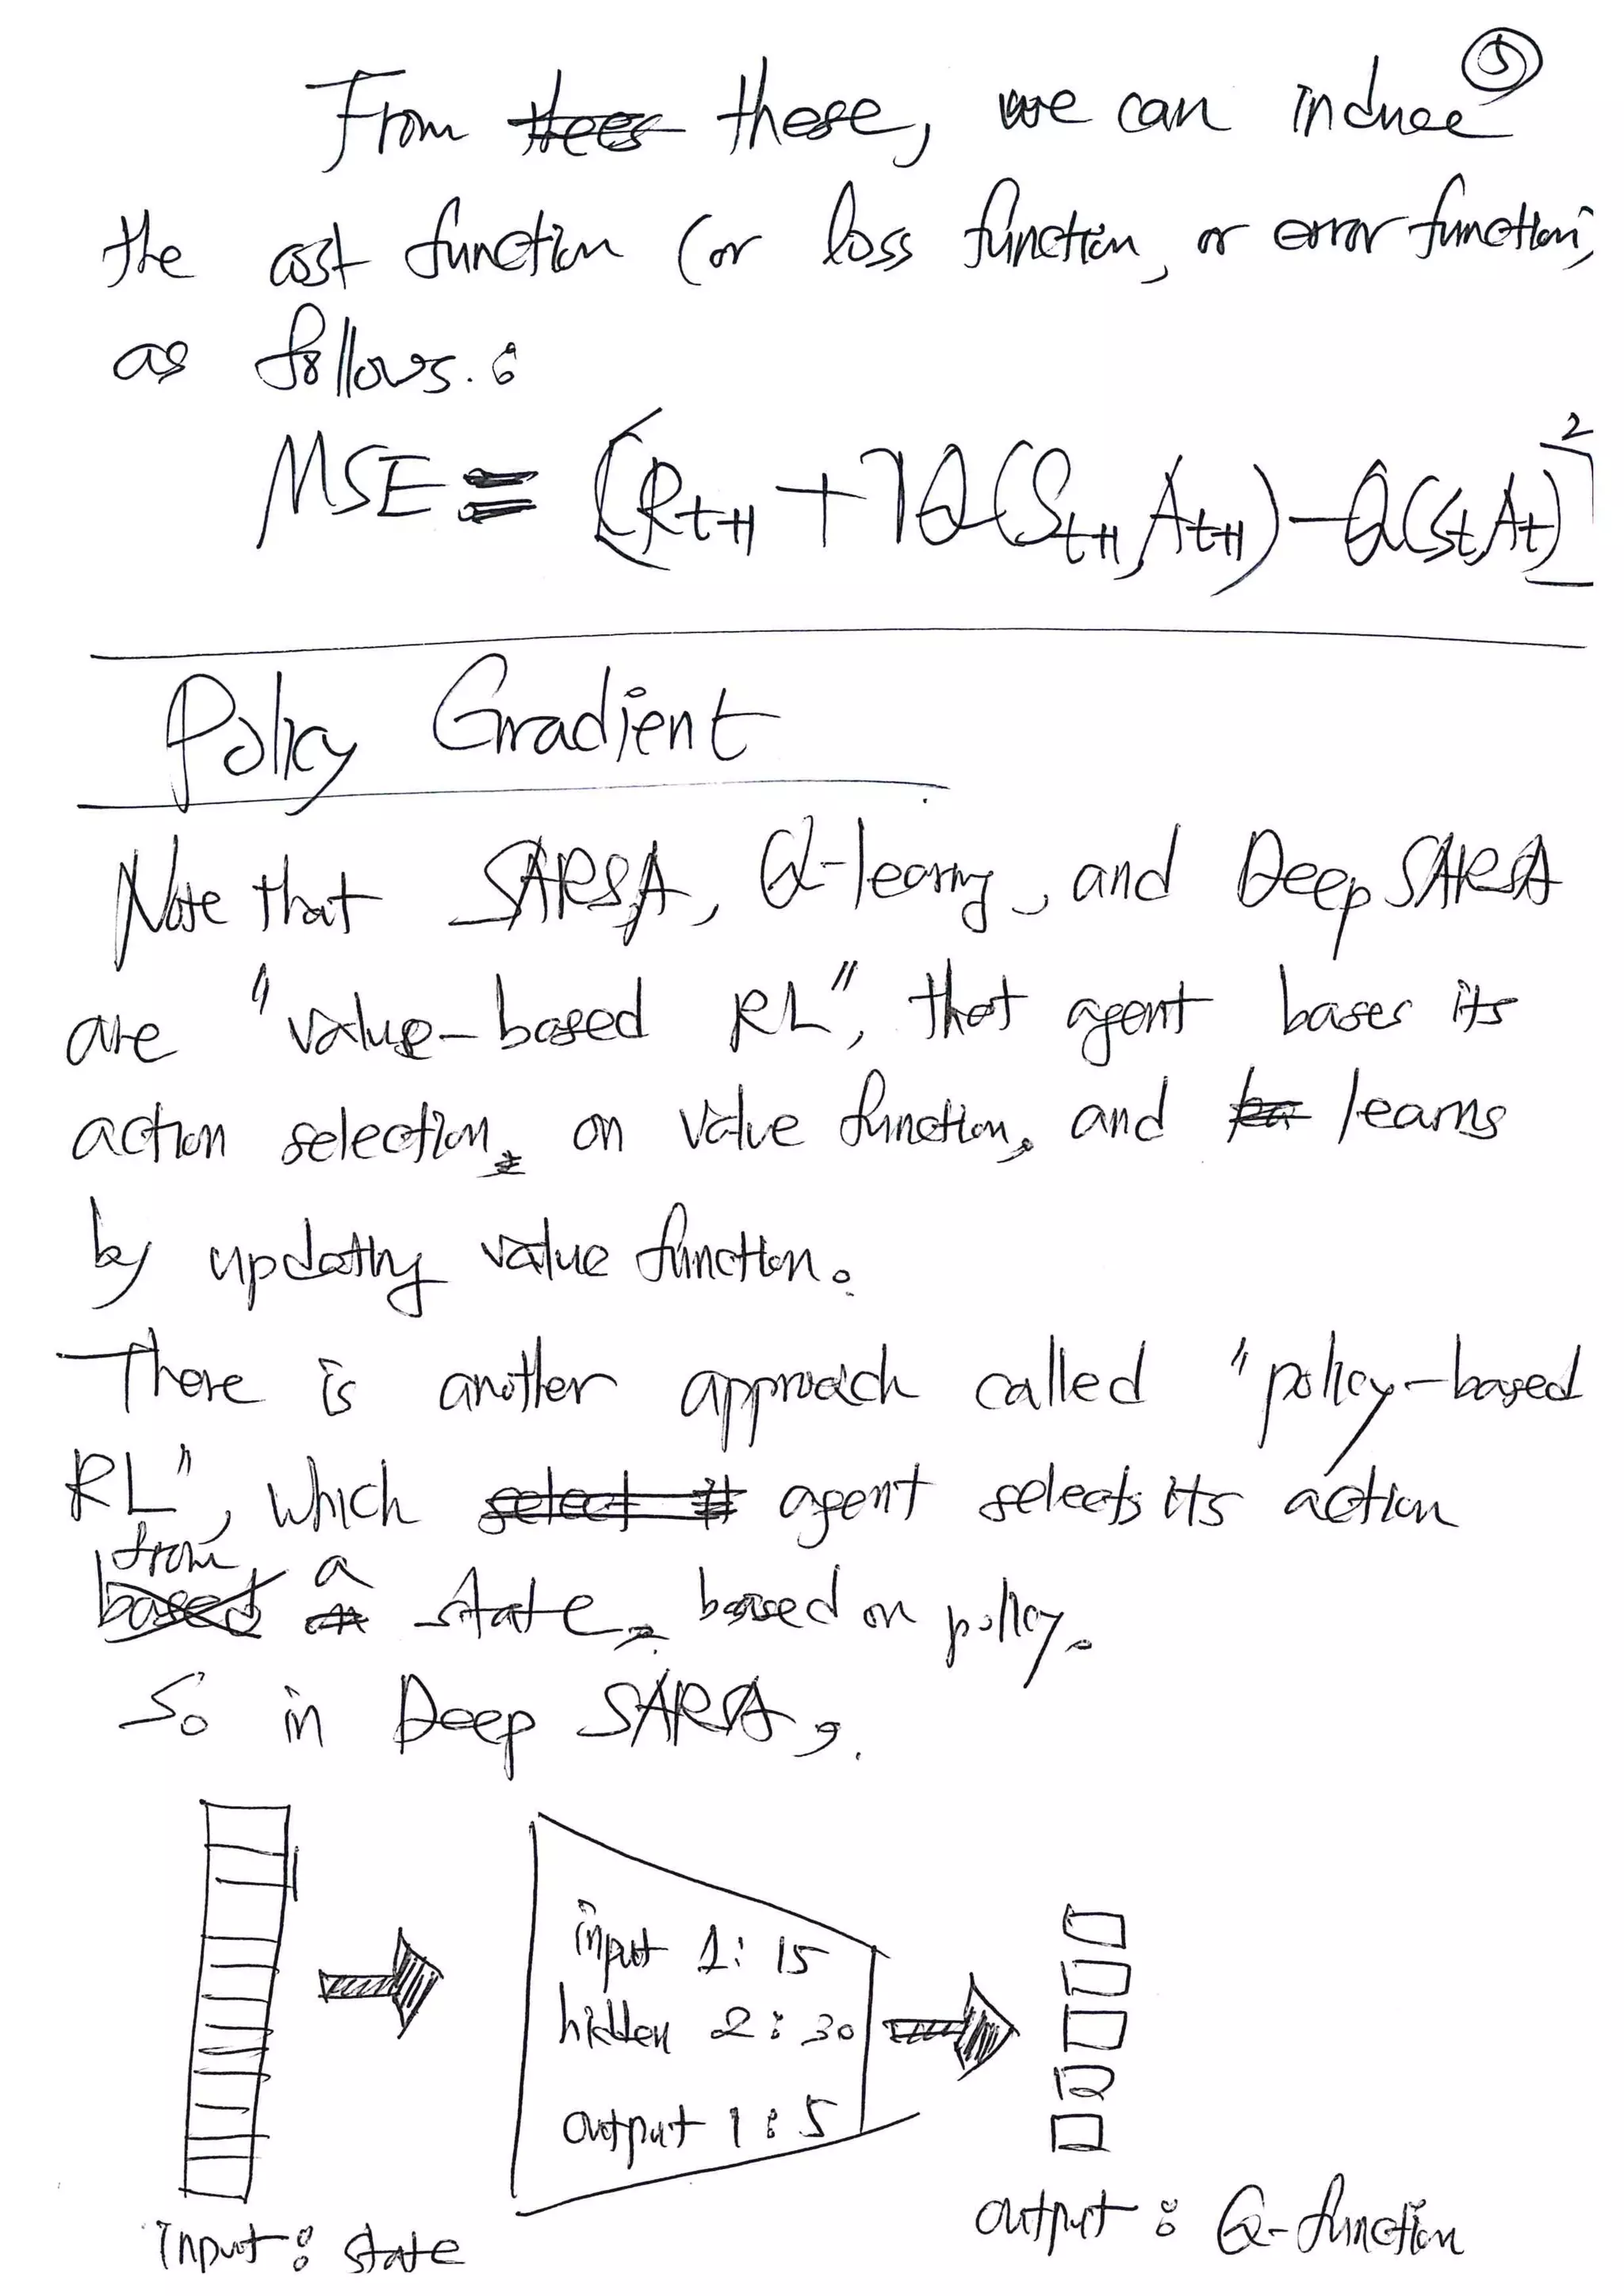 ⑤
From ~~thees~~ these, we can induce
the cost function (or loss function, or error function)
as follows. :
MSE = [R_{t+1} + γQ(S_{t+1}, A_{t+1}) - Q(S_t, A_t)]²
Policy Gradient
Note that SARSA, Q-learning, and Deep SARSA
are "value-based RL", that agent bases its
action selection, on value function, and learns
by updating value function.
There is another approach called "policy-based
RL", which ~~select it~~ agent selects its action
from a
~~based~~ state, based on policy.
So in Deep SARSA,
input 1: 15
hidden 2: 30
output 1: 5
input: state
output: Q-function